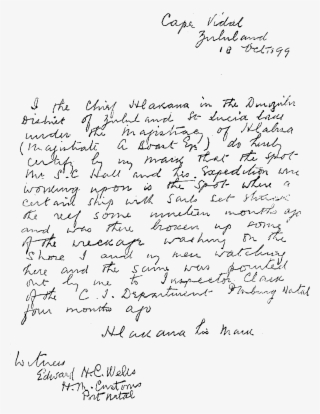 Cape Vidal
Zululand
18 Oct. 99
I the Chief Hlakana in the
District of Zululand St Lucia Lake
under the Magistracy of Hlabisa
(Magistrate A Boast Esq) do hereby
certify by my mark that the spot
Mr. S.C Hall and his Expedition are
working upon is the spot where a
certain ship with sails set struck
the reef some nineteen months ago
and was there broken up some
of the wreckage washing on the
shore I and my men watching
here and the same was pointed
out by me to Inspector Clark
of the C. I. Department Natal
four months ago
Hlakana his Mark
Witness
Edward H.C. Wells
H.M. Customs
Port Natal